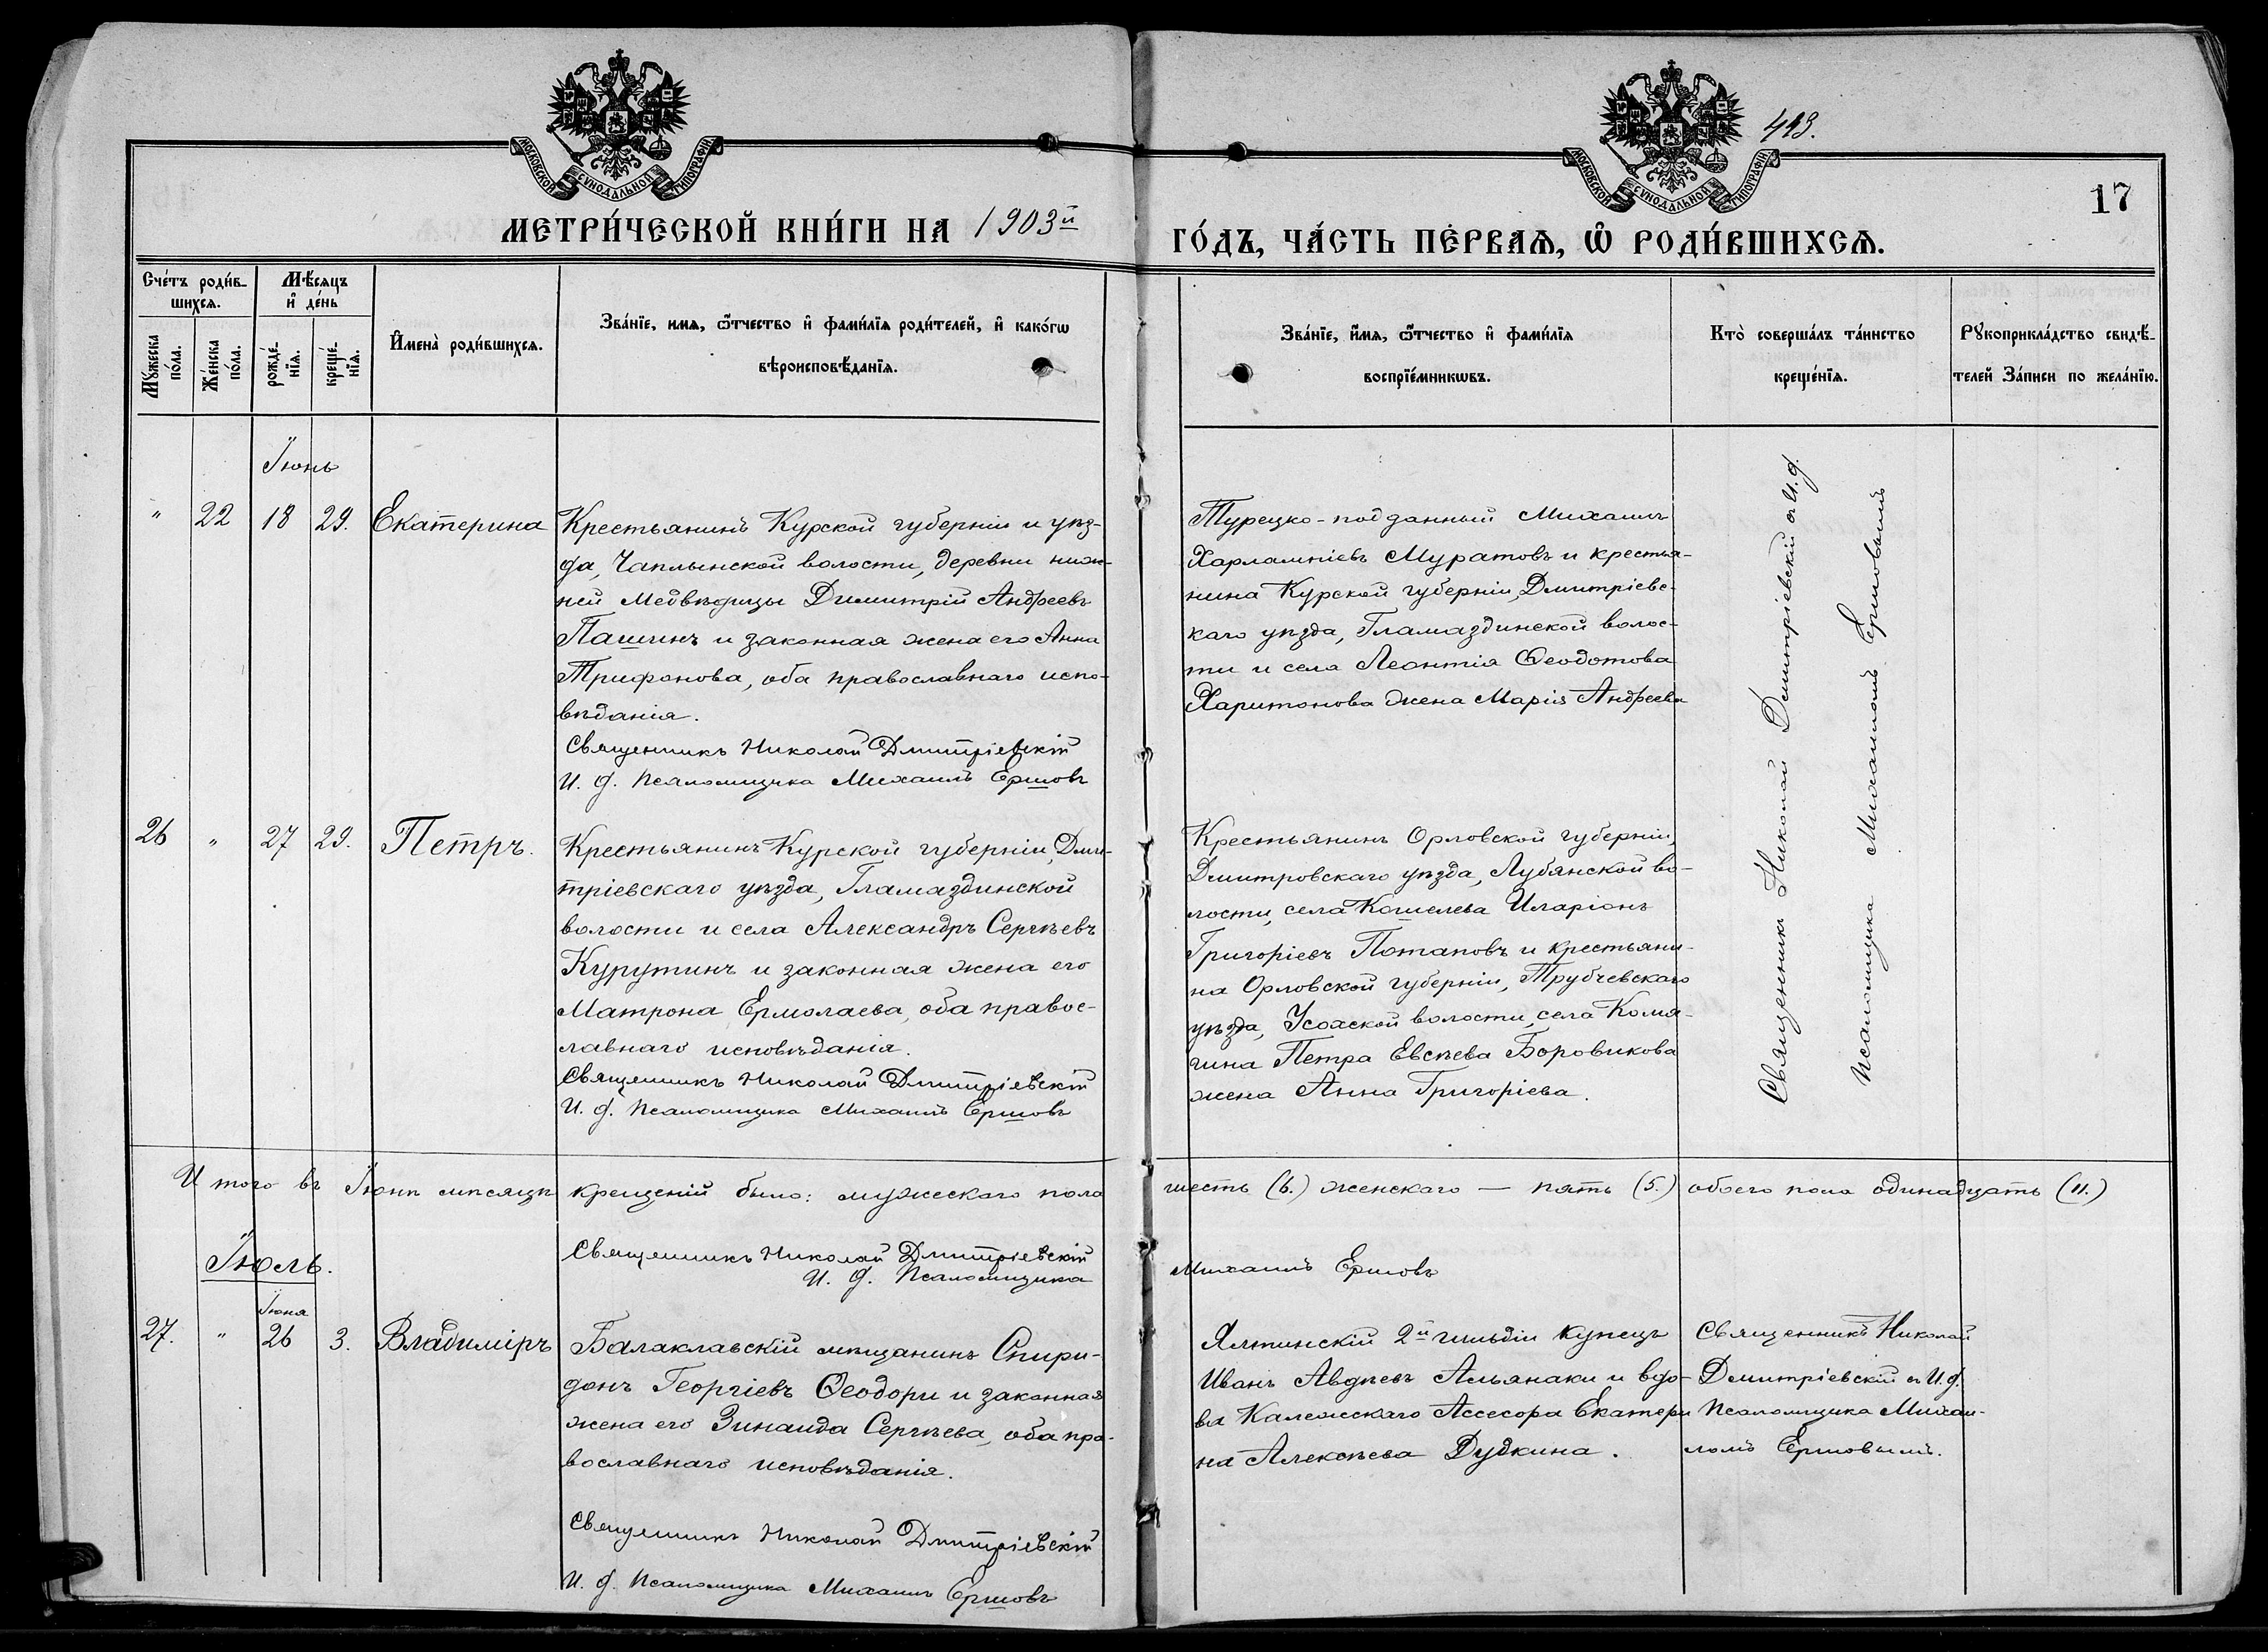 413.
17
МОСКОВСКОЙ СѴНОДАЛЬНОЙ ТИПОГРАФІИ
МОСКОВСКОЙ СѴНОДАЛЬНОЙ ТИПОГРАФІИ
МЕТРИ́ЧЕСКОЙ КНИ́ГИ НА 1903й
ГО́ДЪ, ЧА́СТЬ ПЕ́РВАѦ, Ѽ РОДИ́ВШИХСѦ.
Сче́тъ роди́в-
шихсѧ.
Мѣ́сѧцъ
и҆ де́нь
Мꙋ́жеска
по́ла.
Же́нска
по́ла.
рожде́-
нїѧ.
креще́-
нїѧ.
И҆мена̀ роди́вшихсѧ.
Зва́нїе, имѧ, ѻ҆́тчество и҆ фами́лїѧ роди́телей, и҆ како́гѡ
вѣроисповѣ́данїѧ.
Зва́нїе, и҆́мѧ, ѻ҆́тчество и҆ фами́лїѧ
воспрїе́мникѡвъ.
Кто̀ соверша́лъ та́инство
креще́нїѧ.
Рꙋкоприкла́дство свидѣ́-
телей За́писи по жела́нїю.
Іюнь
" 22 18 29. Екатерина
Крестьянинъ Курской губерніи и уѣз-
да, Чаплынской волости, деревни ниж-
ней Медвѣдицы Димитрій Андреевъ
Пашинъ и законная жена его Анна
Трифонова, оба православнаго испо-
вѣданія.
Священникъ Николай Дмитріевскій
И. д. псаломщика Михаилъ Ершовъ
Турецко-подданный Михаилъ
Харлампіевъ Муратовъ и крестья-
нина Курской губерніи, Дмитріевс-
каго уѣзда, Гламаздинской волос-
ти и села Леонтія Ѳеодотова
Харитонова жена Марія Андреева
Священникъ Николай Дмитріевскій съ И. д.
псаломщика Михаиломъ Ершовымъ
26 " 27 29. Петръ.
Крестьянинъ Курской губерніи, Дми-
тріевскаго уѣзда, Гламаздинской
волости и села Александръ Сергѣевъ
Курутинъ и законная жена его
Матрона Ермолаева, оба правос-
лавнаго исповѣданія.
Священникъ Николай Дмитріевскій
И. д. псаломщика Михаилъ Ершовъ
Крестьянинъ Орловской губерніи,
Дмитровскаго уѣзда, Лубянской во-
лости, села Кошелева Иларіонъ
Григоріевъ Потаповъ и крестьяни-
на Орловской губерніи, Трубчевскаго
уѣзда, Усохской волости, села Комя-
гина Петра Евсѣева Боровикова
жена Анна Григоріева.
И того въ Іюнѣ мѣсяцѣ крещеній было: мужескаго пола шесть (6.) женскаго — пять (5.) обоего пола одинадцать (11.)
Священникъ Николай Дмитріевскій
И. д. Псаломщика Михаилъ Ершовъ
Іюль.
Іюня
27. " 26 3. Владиміръ
Балаклавскій мѣщанинъ Спири-
донъ Георгіевъ Ѳеодори и законная
жена его Зинаида Сергѣева, оба пра-
вославнаго исповѣданія.
Священникъ Николай Дмитріевскій
И. д. псаломщика Михаилъ Ершовъ
Ялтинскій 2й гильдіи купецъ
Иванъ Авдѣевъ Альянаки и вдо-
ва Калежскаго Ассесора Екатери
на Алексѣева Дудкина.
Священникъ Николай
Дмитріевскій съ И. д.
псаломщика Михаи-
ломъ Ершовымъ.